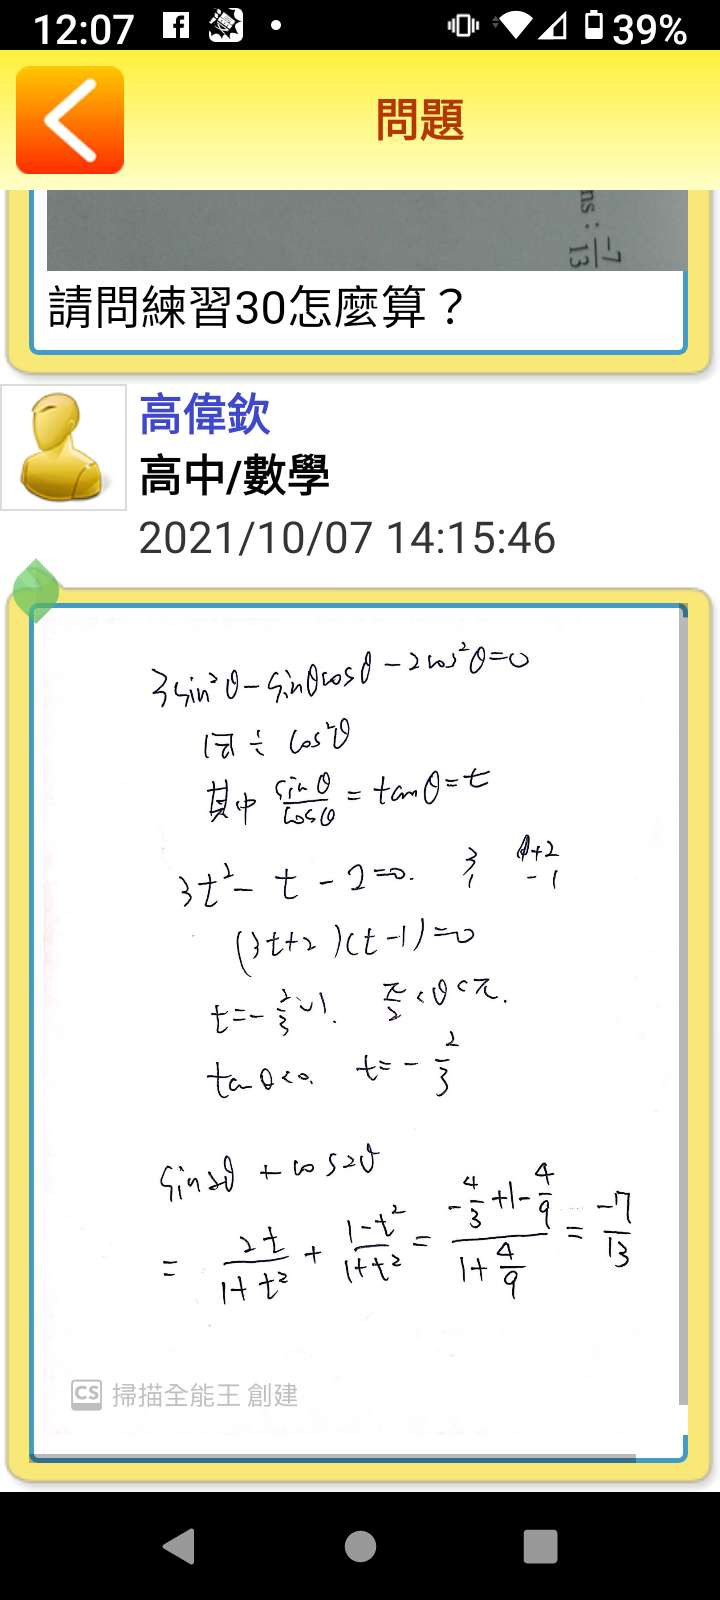 12:07 39%
問題
ns : -7/13
請問練習30怎麼算？
高偉欽
高中/數學
2021/10/07 14:15:46
3sin²θ-sinθcosθ-2cos²θ=0
同÷cos²θ
其中 sinθ/cosθ = tanθ=t
3t²-t-2=0. 3 +2
1 -1
(3t+2)(t-1)=0
t=-2/3, 1. π/2<θ<π.
tanθ<0. t=-2/3
sin2θ+cos2θ
= 2t/1+t² + 1-t²/1+t² = -4/3+1-4/9/1+4/9 = -7/13
CS 掃描全能王 創建